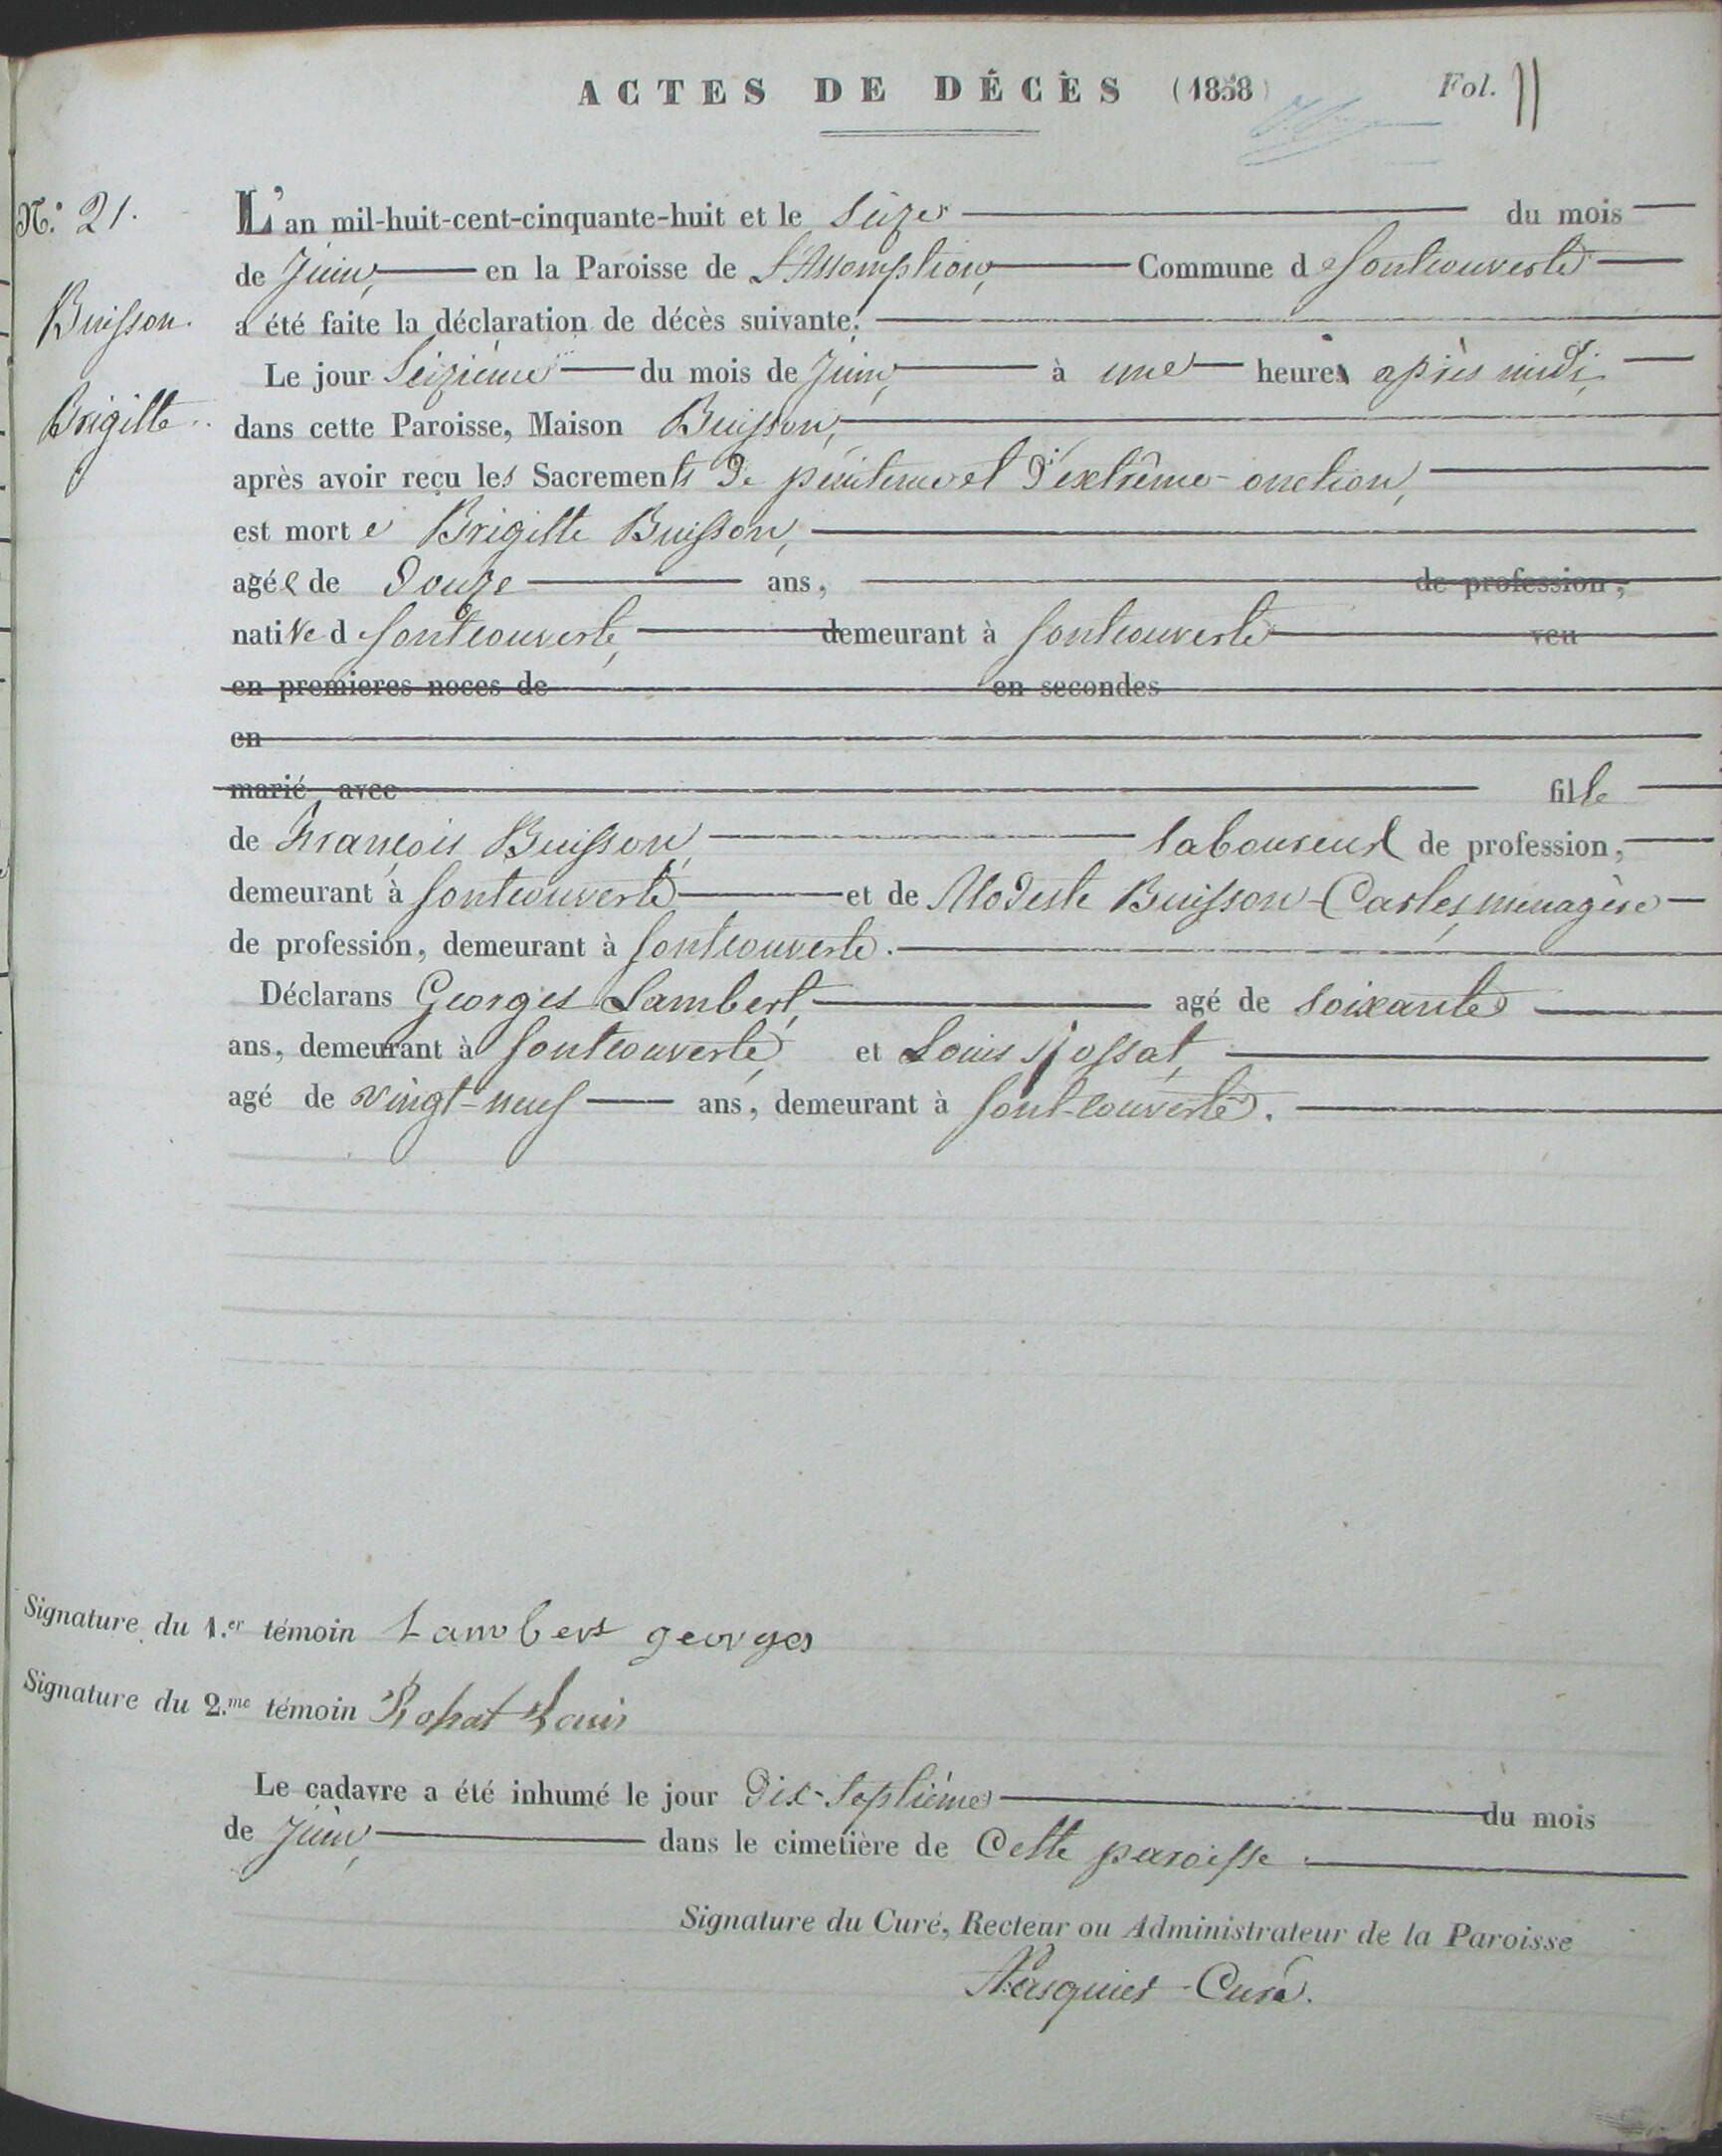 ACTES DE DÉCÈS (1858) Fol. 11
N.° 21.
L'an mil-huit-cent-cinquante-huit et le Seize du mois
de Juin, en la Paroisse de l'Assomption, Commune de fontcouverte
Buisson. a été faite la déclaration de décès suivante.
Le jour Seizième du mois de Juin, à une heures après midi,
Brigitte. dans cette Paroisse, Maison Buisson,
après avoir reçu les Sacrements de pénitence et d'extrême-onction,
est morte Brigitte Buisson,
agée de Douze ans, de profession,
native de fontcouverte, demeurant à fontcouverte veu
en premieres noces de en secondes
en
marié avec fille
de François Buisson, laboureur de profession,
demeurant à fontcouverte et de Modeste Buisson-Carles, ménagère
de profession, demeurant à fontcouverte.
Déclarans Georges Lambert, agé de soixante
ans, demeurant à fontcouverte, et Louis Rossat,
agé de vingt-neuf ans, demeurant à font-couverte.
Signature du 1.er témoin Lambert georges
Signature du 2.me témoin Rossat Louis
Le cadavre a été inhumé le jour Dix-Septième du mois
de Juin, dans le cimetière de Cette paroisse.
Signature du Curé, Recteur ou Administrateur de la Paroisse
Pasquier - Curé.